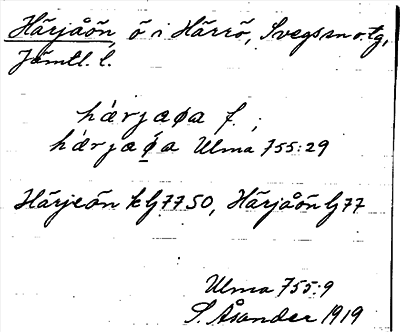 Härjåön ö i Härrö, Svegs sn o. tg,
Jämtl. l.
härjaøa f.;
härjaøa Ulma 755:29
Härjeön k G 7750, Härjåön G 77
Ulma 755:9
S. Åsander 1919